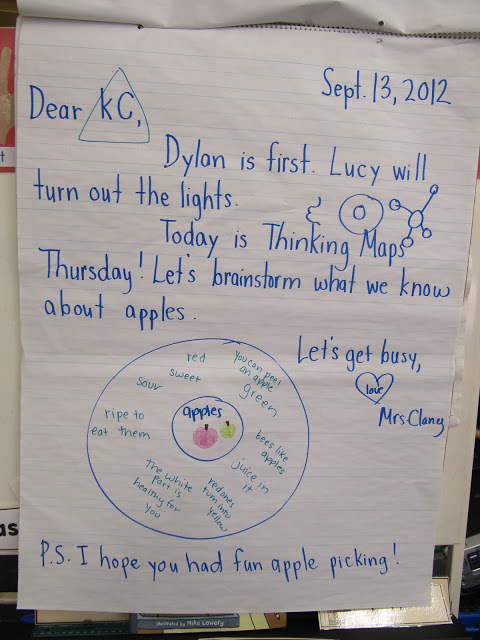 Sept. 13, 2012
Dear KC,
Dylan is first. Lucy will
turn out the lights.
Today is Thinking Maps
Thursday! Let's brainstorm what we know
about apples.
Let's get busy,
love
Mrs. Claney
apples
red
sweet
sour
ripe to
eat them
The white
part is
healthy for
you
red ones
turn into
yellow
juice in
it
bees like
apples
You can peel
an apple
green
P.S. I hope you had fun apple picking!
illustrated by Mike Lowery
t
as